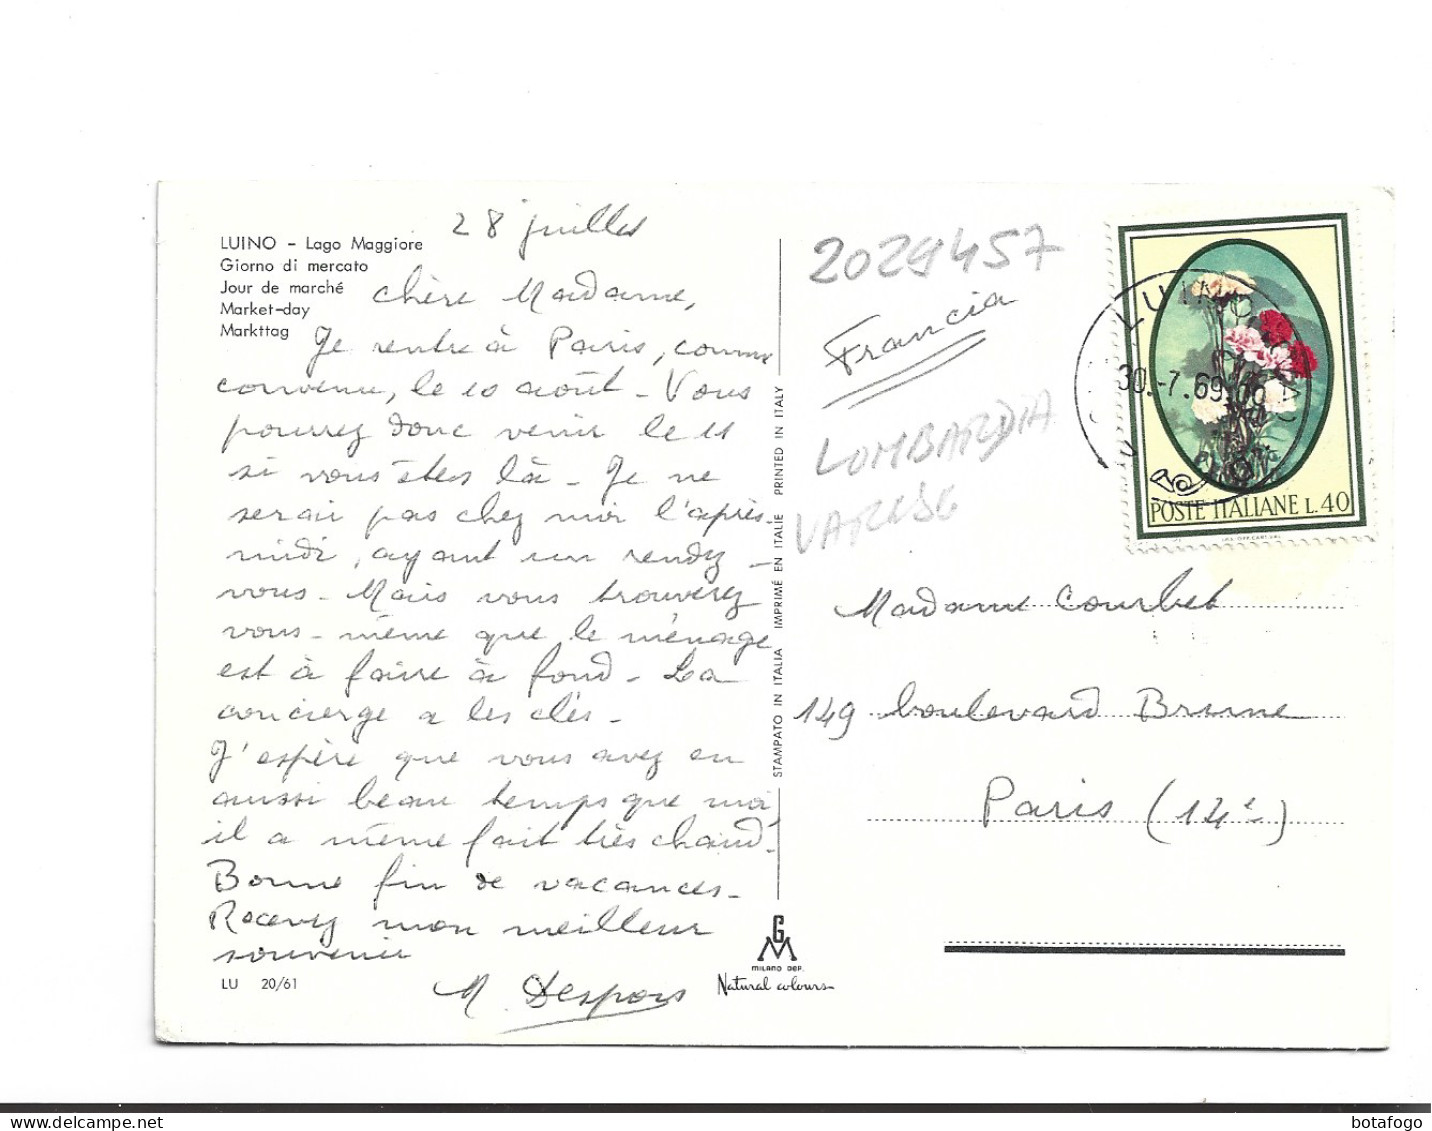 28 juillet
LUINO - Lago Maggiore
Giorno di mercato
Jour de marché
Market-day
Markttag
Chère Madame,
Je rentre à Paris, comme
convenu, le 10 août - Vous
pourrez donc venir le 11
si vous êtes là - Je ne
serai pas chez moi l'après-
midi, ayant un rendez-
vous - Mais vous trouverez
vous-même que le ménage
est à faire à fond - La
concierge a les clés -
J'espère que vous avez eu
aussi beau temps que moi,
il a même fait très chaud.
Bonne fin de vacances -
Recevez mon meilleur
souvenir
M. Despois
LU 20/61
STAMPATO IN ITALIA IMPRIMÉ EN ITALIE PRINTED IN ITALY
GM
MILANO DEP.
Natural colours
2029457
Francia
LOMBARDIA
VARESE
LUINO
30.-7.69
POSTE ITALIANE L.40
Madame Courbet
149 boulevard Brune
Paris (14e)
botafogo